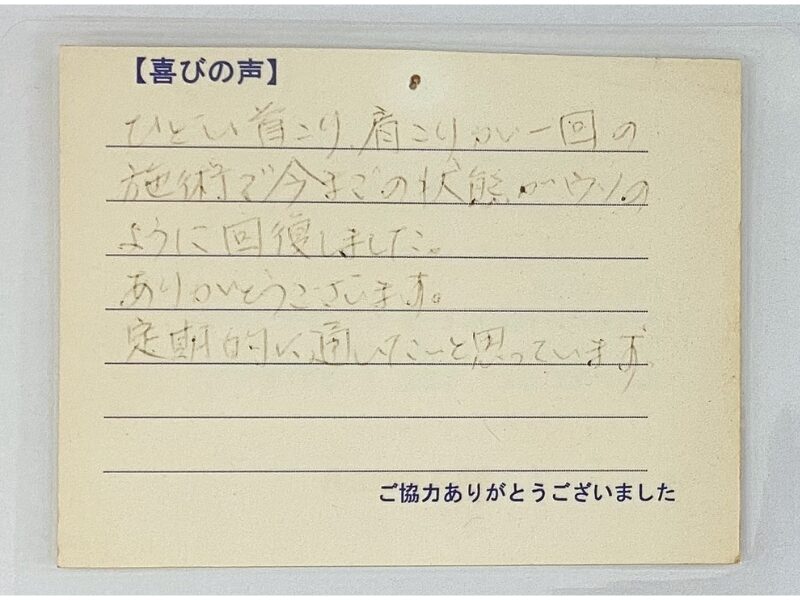 【喜びの声】
ひどい首こり、肩こりが一回の
施術で今までの状態がウソの
ように回復しました。
ありがとうございます。
定期的に通いたいと思っています
ご協力ありがとうございました